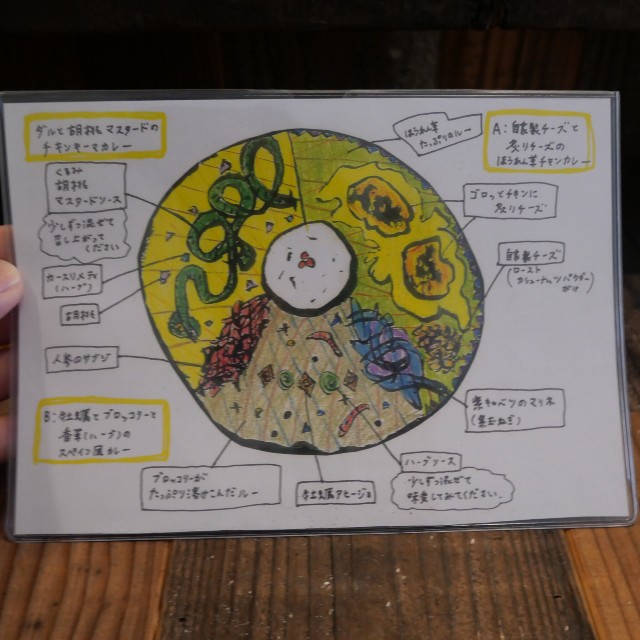 ダルと胡桃マスタードの
チキンキーマカレー
くるみ
胡桃
マスタードソース
少しずつ混ぜて
召し上がって
ください
カースリメティ
(ハーブ)
胡桃
人参のサブジ
B: 砂肝とブロッコリーと
香草(ハーブ)の
スペイン風カレー
ブロッコリーが
たっぷり溶けこんだルー
砂肝アヒージョ
ハーブソース
少しずつ混ぜて
味変してみてください。
紫キャベツのマリネ
自家製チーズ
(ロースト
カシューナッツパウダー
がけ)
ゴロッとチキンに
炙りチーズ
A: 自家製チーズと
炙りチーズの
ほうれん草チキンカレー
ほうれん草
たっぷりのルー